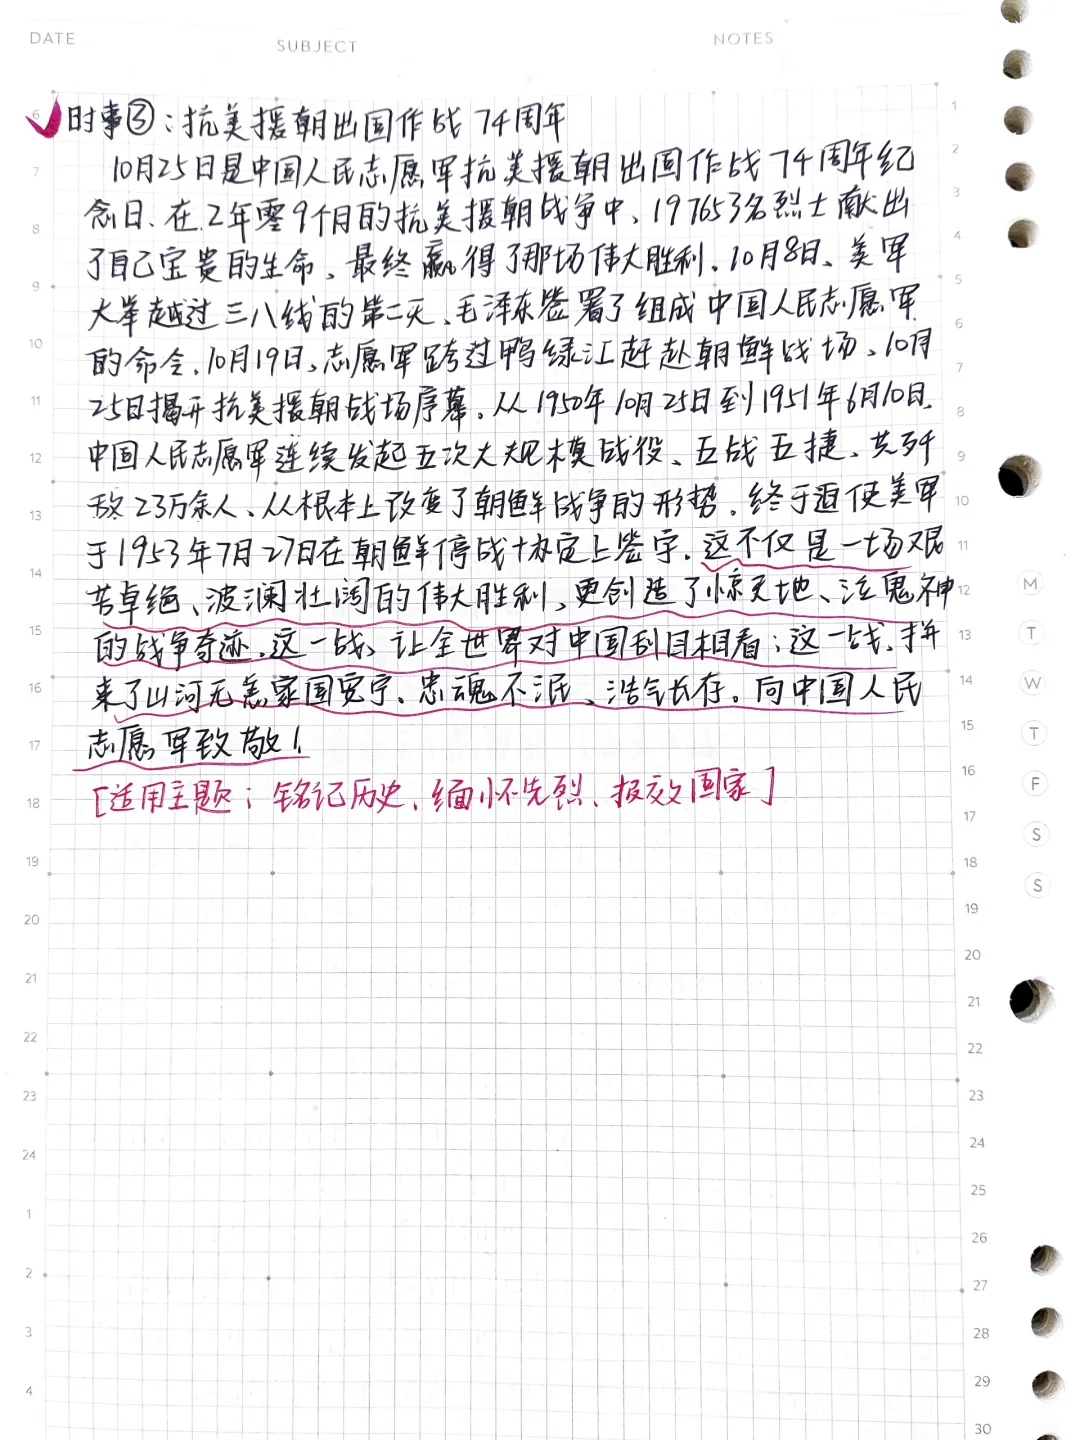 DATE SUBJECT NOTES
时事③:抗美援朝出国作战74周年
10月25日是中国人民志愿军抗美援朝出国作战74周年纪
念日、在2年零9个月的抗美援朝战争中、197653名烈士献出
了自己宝贵的生命、最终赢得了那场伟大胜利、10月8日、美军
大举越过三八线的第二天、毛泽东签署了组成中国人民志愿军
的命令、10月19日、志愿军跨过鸭绿江赶赴朝鲜战场、10月
25日揭开抗美援朝战场序幕。从1950年10月25日到1951年6月10日、
中国人民志愿军连续发起五次大规模战役、五战五捷、共歼
敌23万余人、从根本上改变了朝鲜战争的形势。终于迫使美军
于1953年7月27日在朝鲜停战协定上签字。这不仅是一场艰
苦卓绝、波澜壮阔的伟大胜利、更创造了惊天地、泣鬼神
的战争奇迹。这一战、让全世界对中国刮目相看;这一战、拼
来了山河无恙家国安宁、忠魂不泯、浩气长存。向中国人民
志愿军致敬!
[适用主题:铭记历史、缅怀先烈、报效国家]
6
7
8
9
10
11
12
13
14
15
16
17
18
19
20
21
22
23
24
1
2
3
4
1
2
3
4
5
6
7
8
9
10
11
12
13
14
15
16
17
18
19
20
21
22
23
24
25
26
27
28
29
30
M
T
W
T
F
S
S